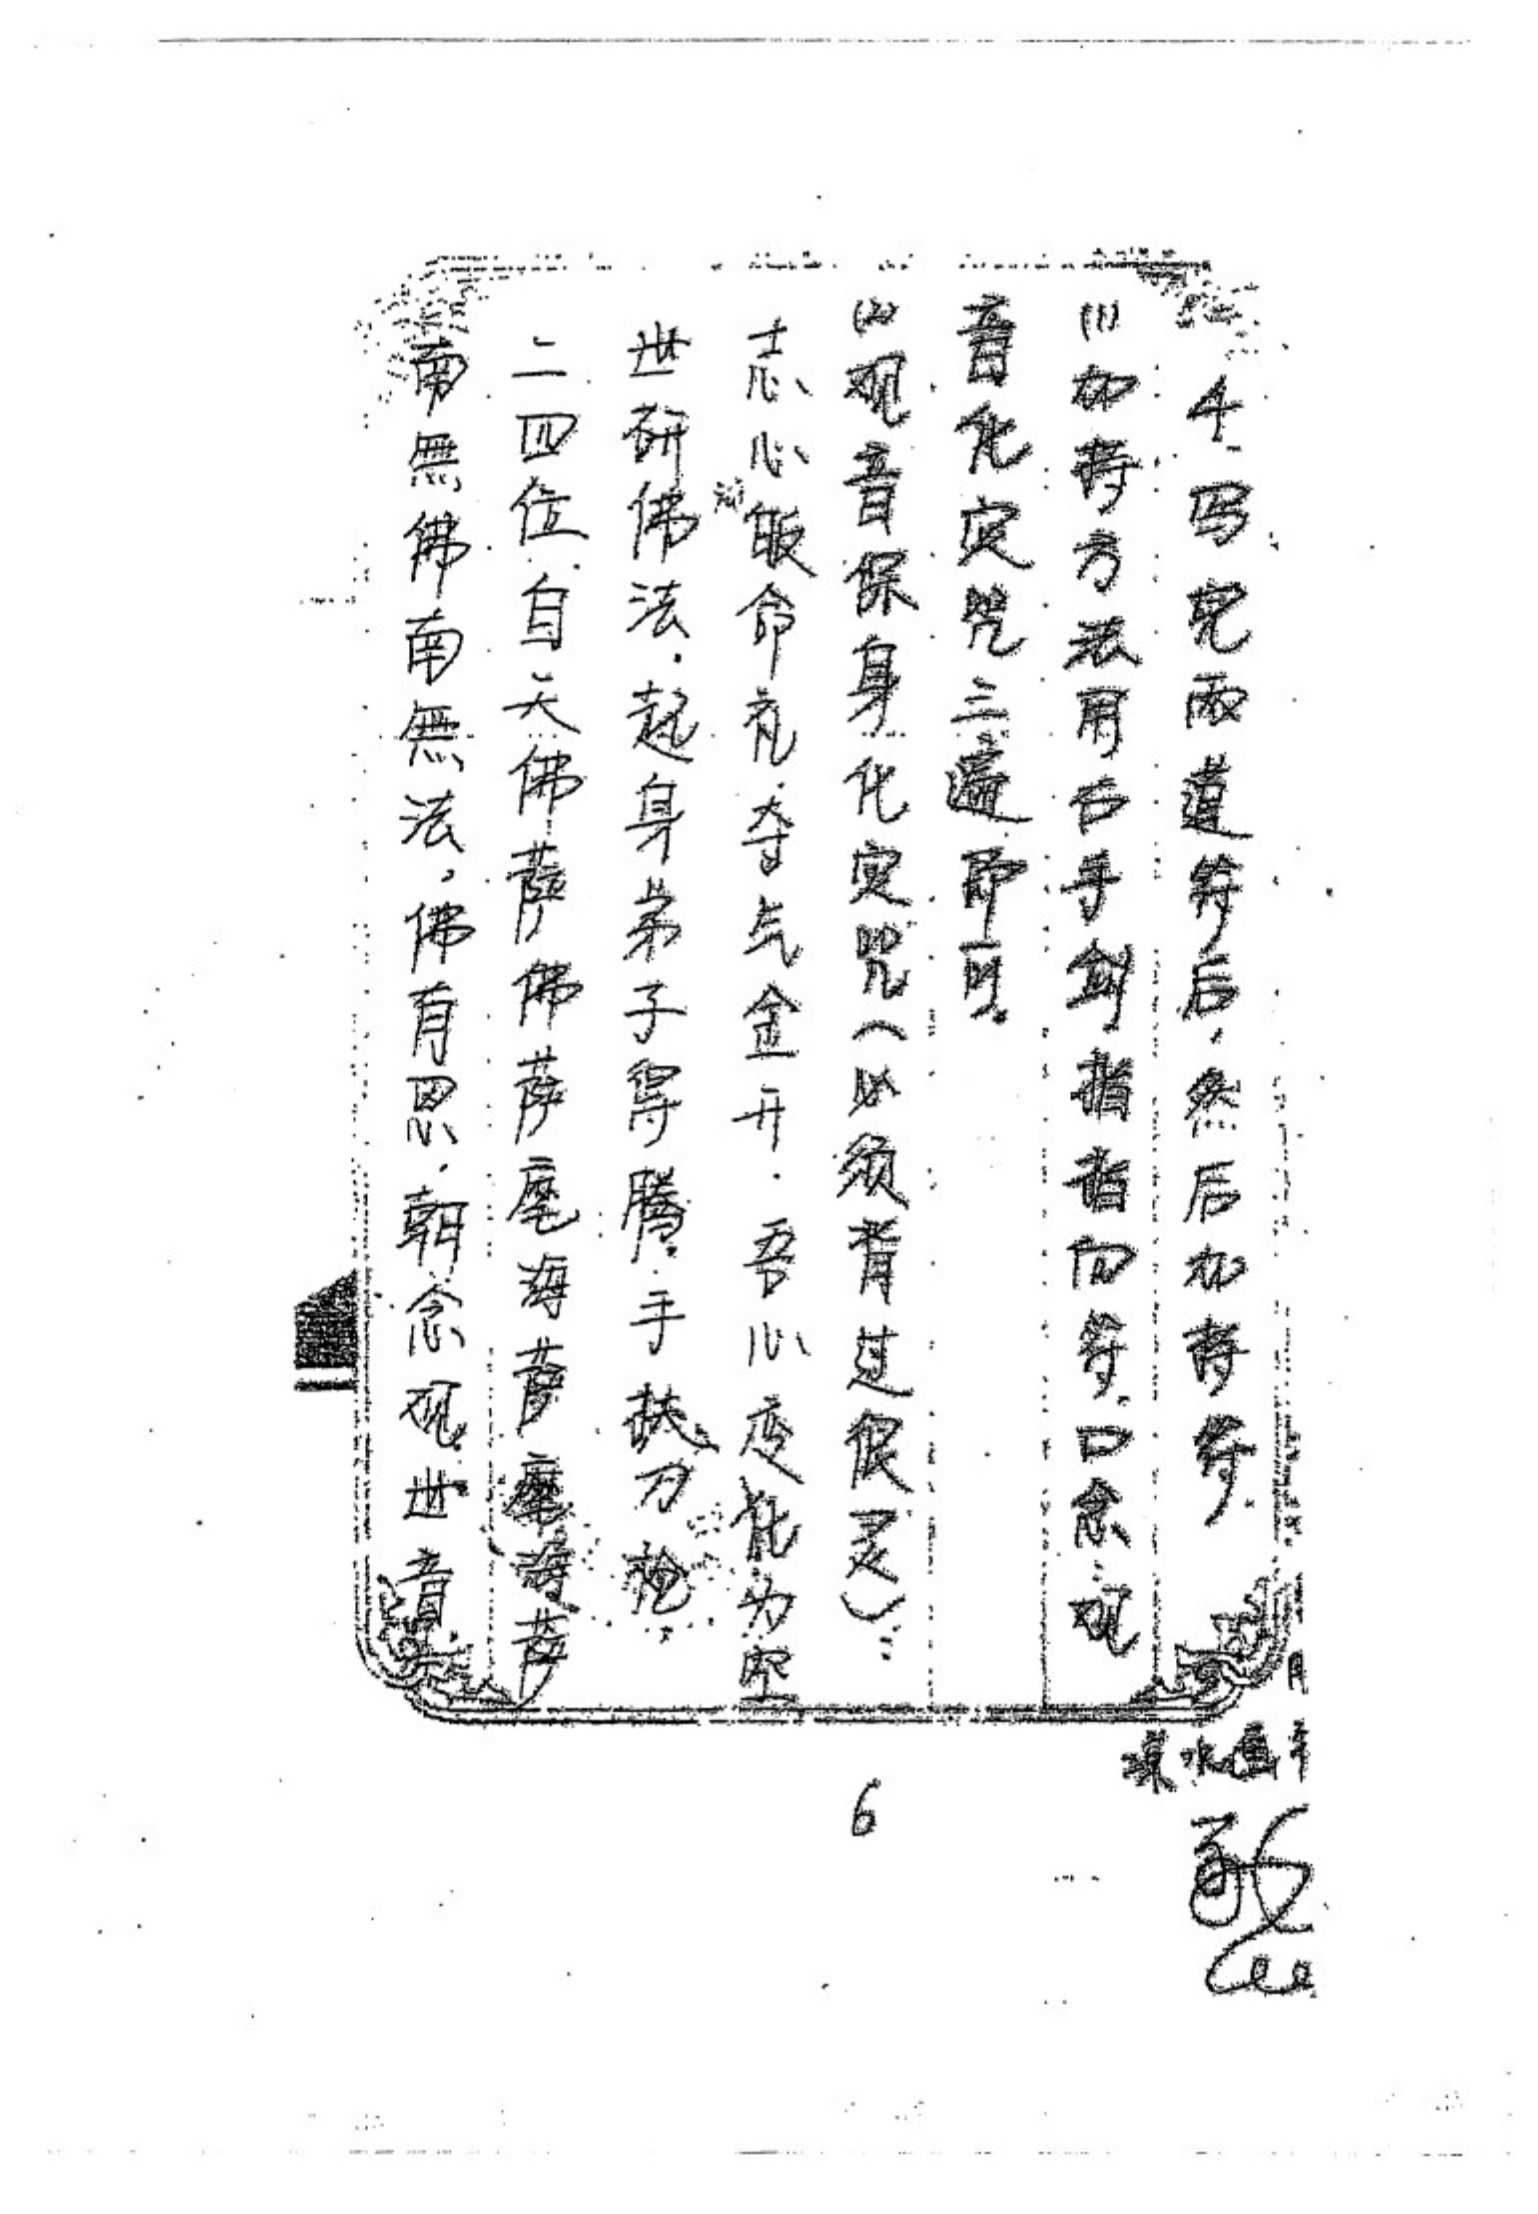 4.写完两道符后，然后加持符.
(1)加持方法用右手剑指指向符.口念:观
音化定咒三遍即可.
(2)观音保身化定咒(必须背过很灵):
志心皈命礼.夺气金开.吾心变化为空
世研佛法.起身弟子得腾.手扶刀枪.
二四位.自天佛萨佛萨麾海萨麾海萨
南無佛南無法，佛有恩.朝念观世音.
6